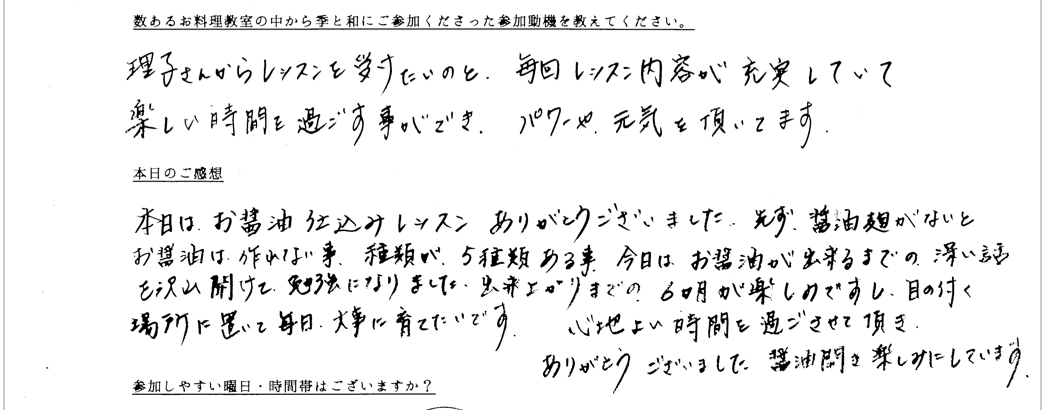 数あるお料理教室の中から季と和にご参加くださった参加動機を教えてください。
理子さんからレッスンを受けたいのと、毎回レッスン内容が充実していて
楽しい時間を過ごす事ができ、パワーや、元気を頂いてます。
本日のご感想
本日は、お醤油仕込みレッスンありがとうございました。先ず、醤油麹がないと
お醤油は、作れない事、種類が、5種類ある事、今日は、お醤油が出来るまでの、深い話
を沢山聞けて、勉強になりました。出来上がりまでの、6ヵ月が楽しみですし、目の付く
場所に置いて毎日、大事に育てたいです。心地よい時間を過ごさせて頂き、
ありがとうございました。醤油開き楽しみにしています。
参加しやすい曜日・時間帯はございますか?